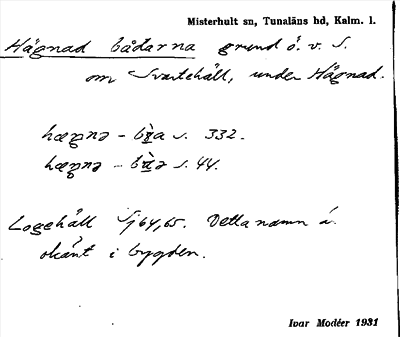 Misterhult sn, Tunaläns hd, Kalm. l.
Hägnad bådarna grund ö. v. S.
om Svartehäll, under Hägnad.
s. 332.
s. 44.
Logehäll Sj 64,65. Detta namn ä.
okänt i bygden.
Ivar Modéer 1931